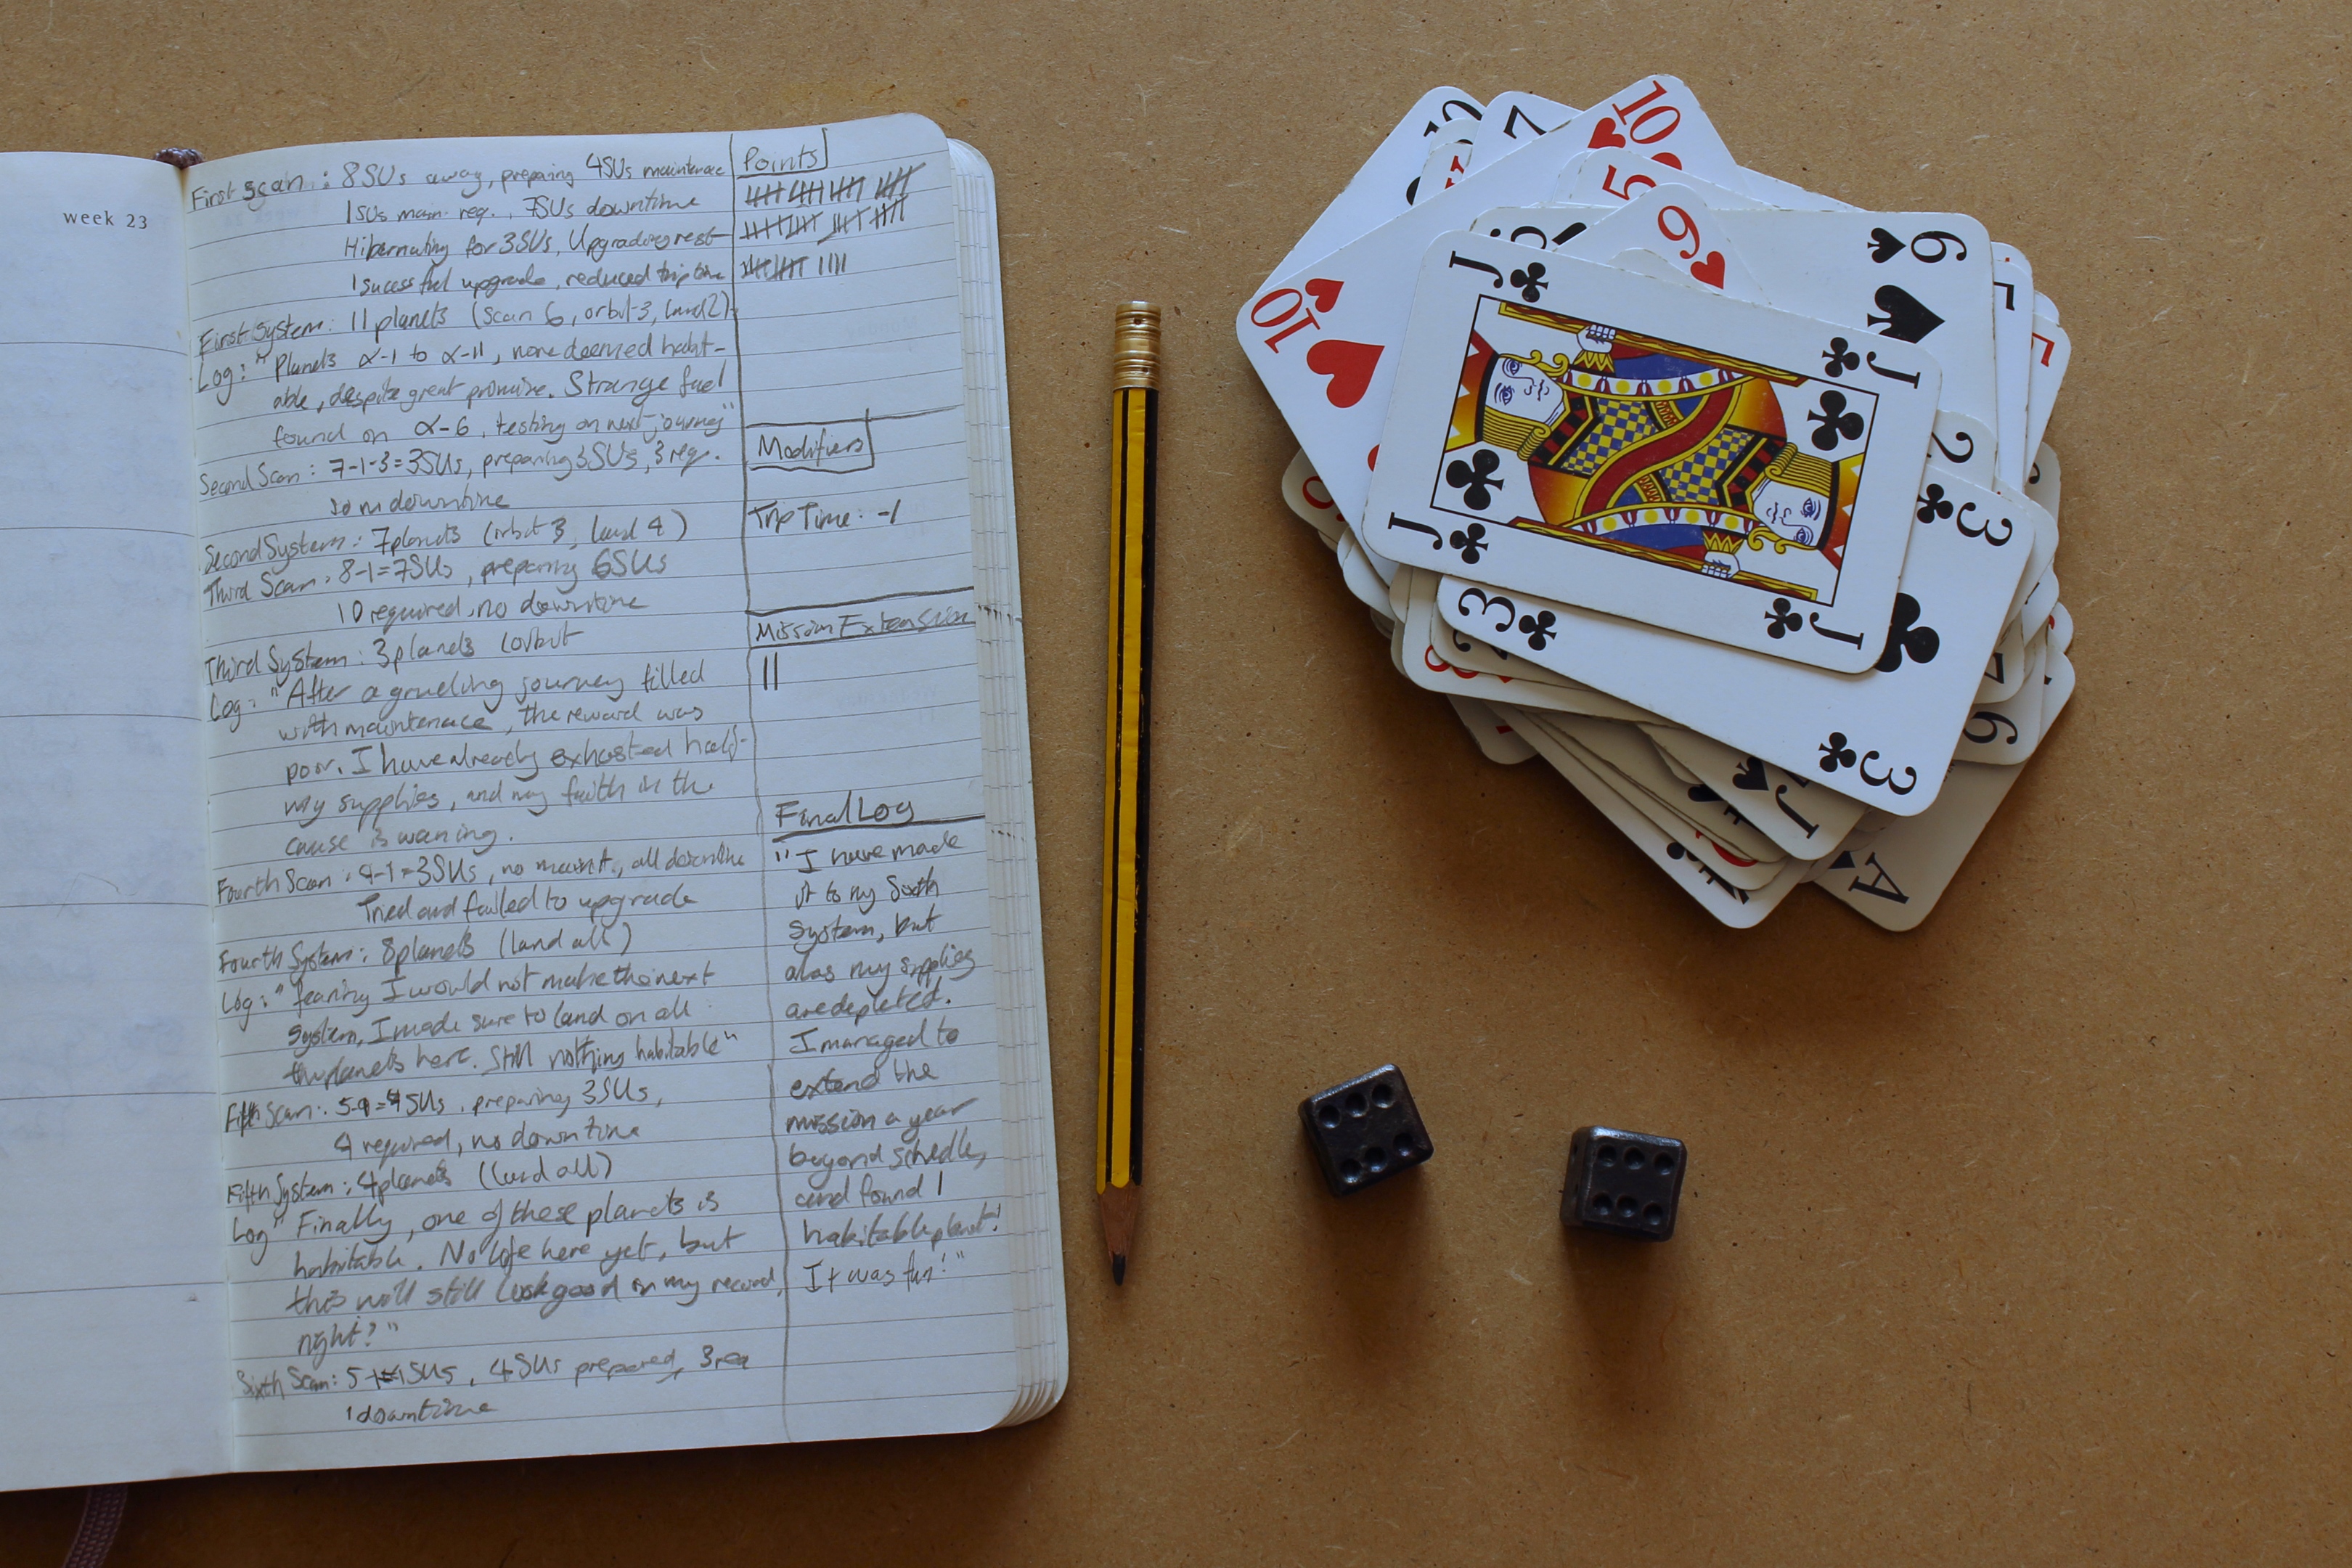 week 23
First Scan: 8SUs away, preparing 4SUs maintenace
1SUs main. req., 7SUs downtime
Hibernating for 3SUs, Upgrading rest
1 sucessful upgrade, reduced trip time
First System: 11 planets (scan 6, orbit 3, land 2)
Log: "Planets α-1 to α-11, none deemed habit-
able, despite great promise. Strange fuel
found on α-6, testing on next journey"
Second Scan: 7-1-3=3SUs, preparing 3SUs, 3 req.
so no downtime
Second System: 7 planets (orbit 3, land 4)
Third Scan: 8-1=7SUs, preparing 6SUs
10 required, no downtime
Third System: 3 planets (orbit
Log: "After a grueling journey filled
with maintenace, the reward was
poor. I have already exhausted half
my supplies, and my faith in the
cause is waning.
Fourth Scan: 4-1=3SUs, no maint., all downtime
Tried and failed to upgrade
Fourth System: 8 planets (land all)
Log: "fearing I would not make the next
system, I made sure to land on all
the planets here. Still nothing habitable"
Fifth Scan: SUs, preparing 3SUs,
4 required, no downtime
Fifth System: 4 planets (land all)
Log "Finally, one of these planets is
habitable. No life here yet, but
this will still look good on my record,
right?"
Sixth Scan: SUs, 4SUs prepared, 3 req
1 downtime
Points
Modifiers
Trip Time: -1
Mission Extension
||
Final Log
"I have made
it to my Sixth
system, but
alas my supplies
are depleted.
I managed to
extend the
mission a year
beyond schedle,
and found 1
habitable planet!
It was fun!"
10
7
10
5
9
6
J
J
10
2
3
J
J
3
3
J
6
A